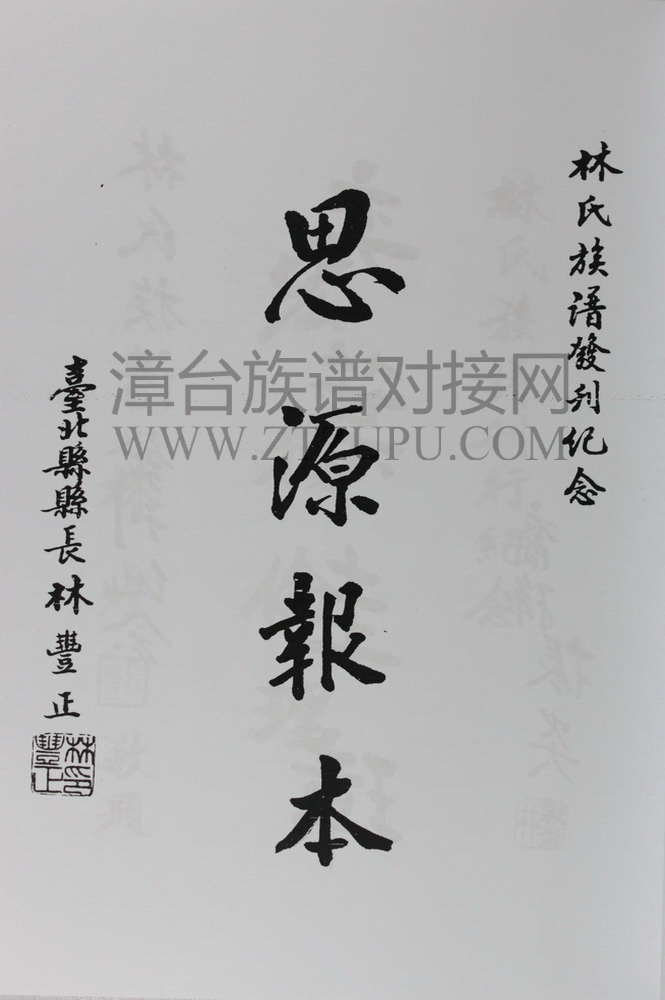 林氏族譜發刊纪念
思源報本
臺北縣縣長林豐正
林豐正印
漳台族谱对接网
WWW.ZTZUPU.COM